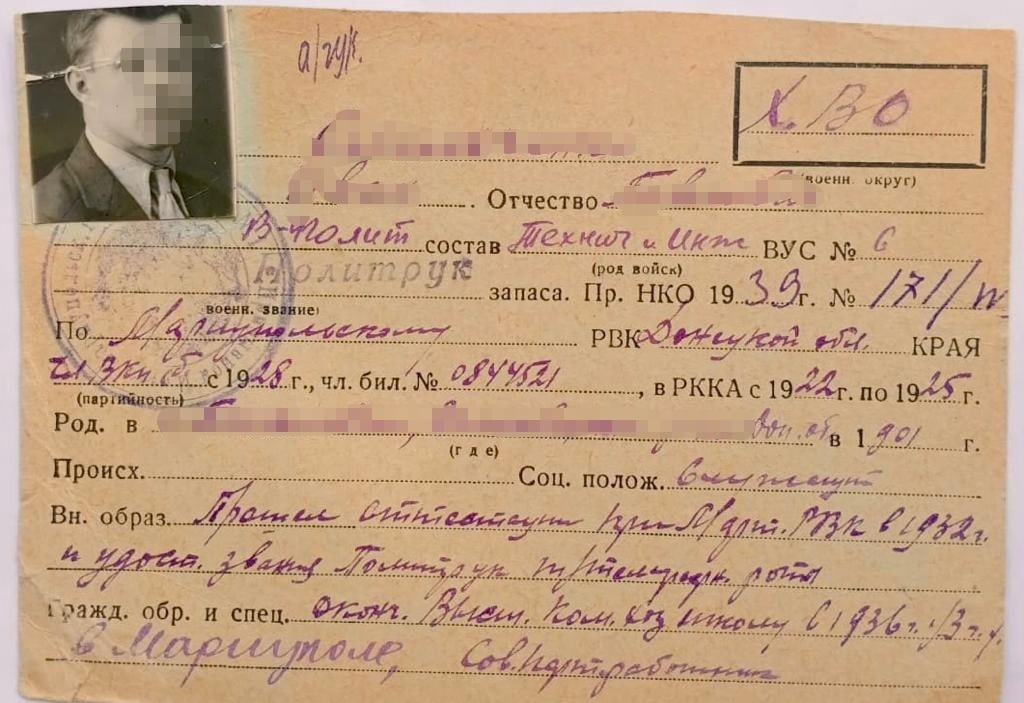 а/гук.
Х. ВО
(военн. округ)
Отчество
В-Полит состав Технич и Инж ВУС № 6
(род войск)
Политрук запаса. Пр. НКО 1939 г. № 171/
военн. звание)
По Мариупольскому РВК Донецкой обл. КРАЯ
с 1928 г., чл. бил. № 0844521, в РККА с 1922 г. по 1925 г.
(партийность)
Род. в в 1901 г.
(где)
Происх. Соц. полож. Служащий
Вн. образ. Прошел аттестации при Марп. РВК в 1932 г.
и удост. звания Политрук роты
Гражд. обр. и спец. оконч. Высш. Ком. школу в 1936 г.
в Мариуполе, Сов. партработник